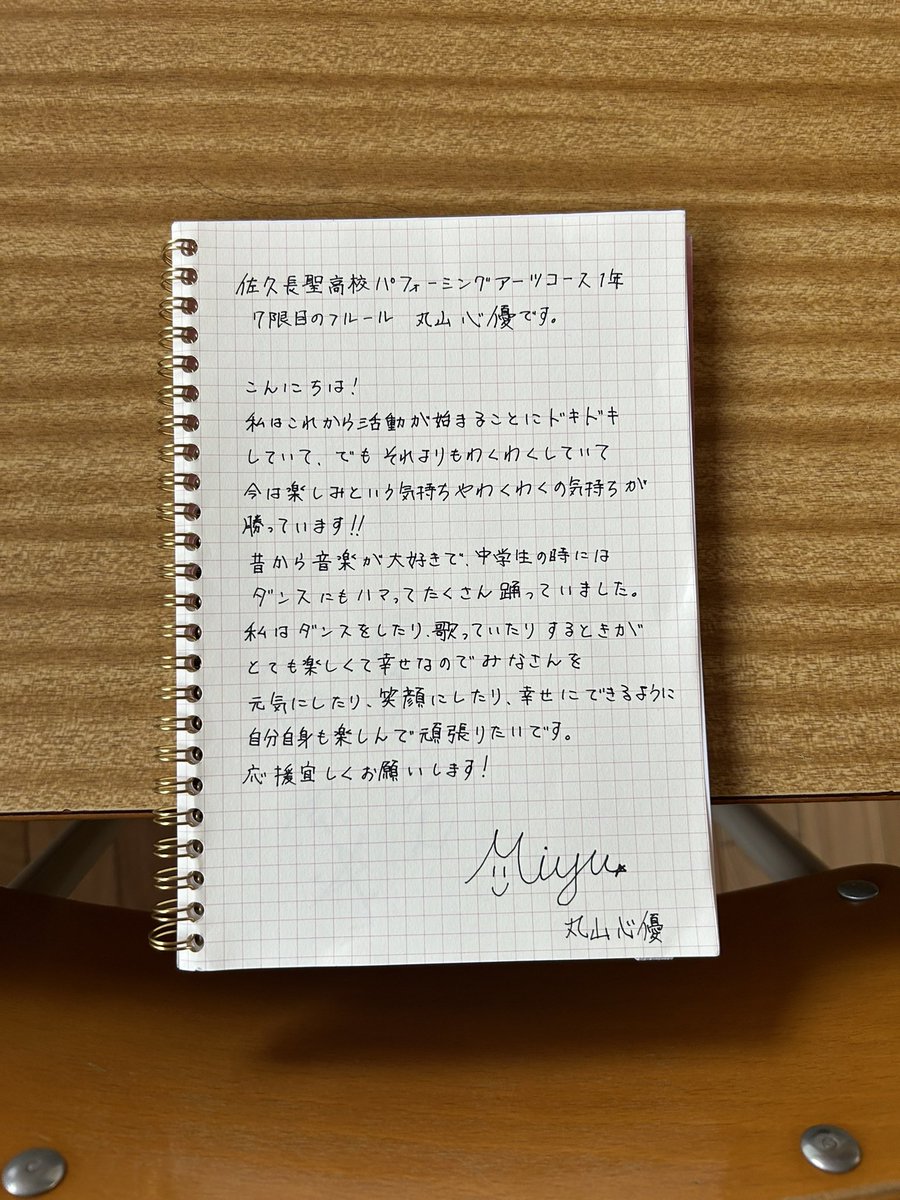 佐久長聖高校パフォーミングアーツコース1年
7限目のフルール 丸山心優です。
こんにちは!
私はこれから活動が始まることにドキドキ
していて、でもそれよりもわくわくしていて
今は楽しみという気持ちやわくわくの気持ちが
勝っています!!
昔から音楽が大好きで、中学生の時には
ダンスにもハマってたくさん踊っていました。
私はダンスをしたり、歌っていたりするときが
とても楽しくて幸せなのでみなさんを
元気にしたり、笑顔にしたり、幸せにできるように
自分自身も楽しんで頑張りたいです。
応援宜しくお願いします!
Miyu
丸山心優